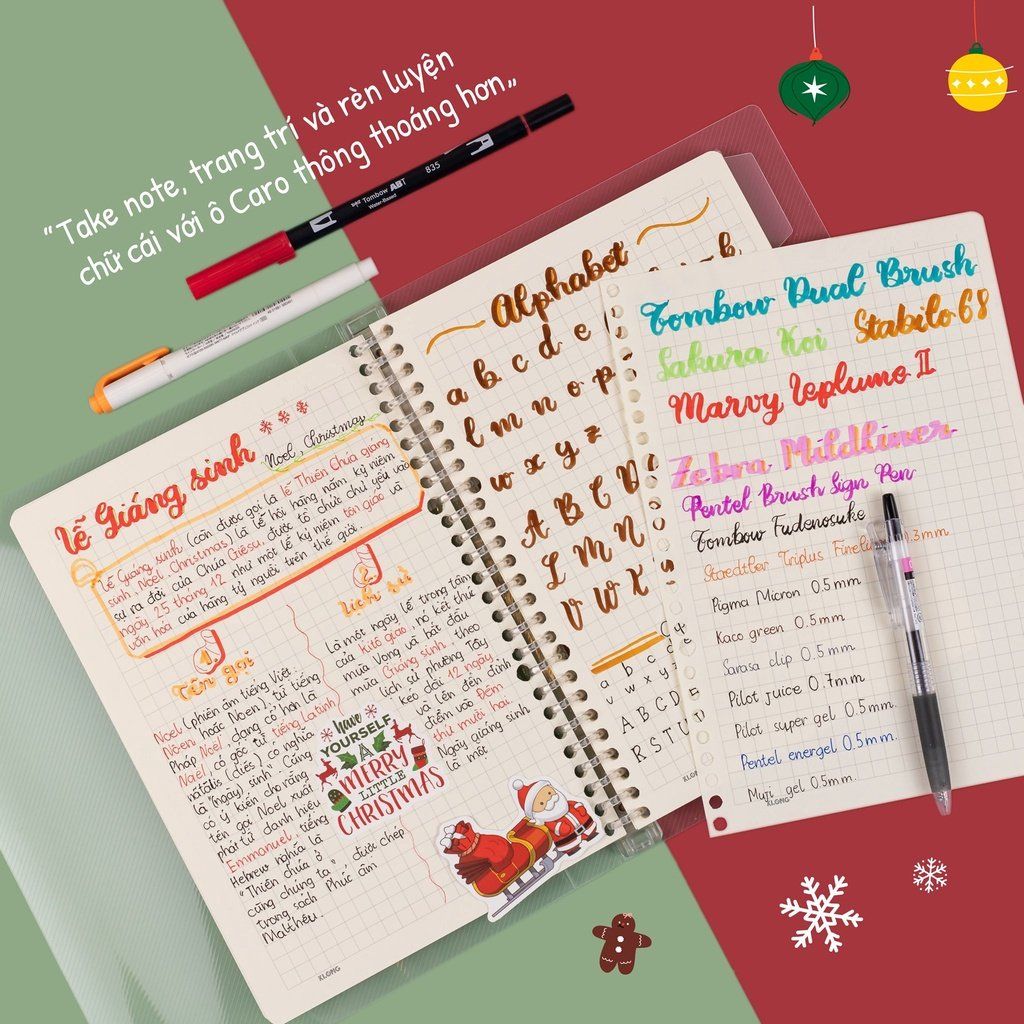 “Take note, trang trí và rèn luyện
chữ cái với ô Caro thông thoáng hơn„
Tombow ABT
Water-Based
835
Lễ Giáng sinh
Noel, Christmas
Lễ Giáng sinh (còn được gọi là lễ Thiên Chúa giáng
sinh, Noel, Christmas) là lễ hội hàng năm kỷ niệm
sự ra đời của Chúa Giêsu, được tổ chức chủ yếu vào
ngày 25 tháng 12 như một lễ kỷ niệm tôn giáo và
văn hoá của hàng tỷ người trên thế giới.
1.
Tên gọi
Noel (phiên âm tiếng Việt:
Nôen hoặc Noen), từ tiếng
Pháp Noël, dạng cổ hơn là
Naël, có gốc từ tiếng La tinh
nātālis (diēs) có nghĩa
là "(ngày) sinh". Cũng
có ý kiến cho rằng
tên gọi Noel xuất
phát từ danh hiệu
Emmanuel, tiếng
Hebrew nghĩa là
"Thiên chúa ở
cùng chúng ta", được chép
trong sách Phúc âm
Matthêu.
Lịch sử
Là một ngày lễ trọng tâm
của Kitô giáo, nó kết thúc
mùa Vọng và bắt đầu
mùa Giáng sinh, theo
lịch sử phương Tây
kéo dài 12 ngày
và lên đến đỉnh
điểm vào Đêm
thứ mười hai.
Ngày giáng sinh
là một
have
YOURSELF
A
MERRY
LITTLE
CHRISTMAS
KLONG
Alphabet
a b c d e
l m n o p
w x y z
A B C D
L M N
V W X
a b c
w x y
A B C D E
R S T U
KLONG
Tombow Dual Brush
Sakura Koi Stabilo 68
Marvy Leplume II
Zebra Mildliner
Pentel Brush Sign Pen
Tombow Fudenosuke
Staedtler Triplus Fineli 0.3mm
Pigma Micron 0.5mm
Kaco green 0.5mm
Sarasa clip 0.5mm
Pilot juice 0.7mm
Pilot super gel 0.5mm.
Pentel energel 0.5mm.
Muji gel 0.5mm.
KLONG